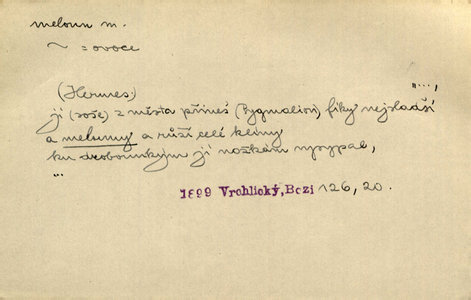 meloun m.
~ = ovoce
(Hermes:) „…,
jí (soše) z města přines (Pygmalion) fíky nejsladší
a melouny a růží celé kliny
ku drobounkým jí nožkám vysypal,
…
1899 Vrchlický, Bozi 126, 20.